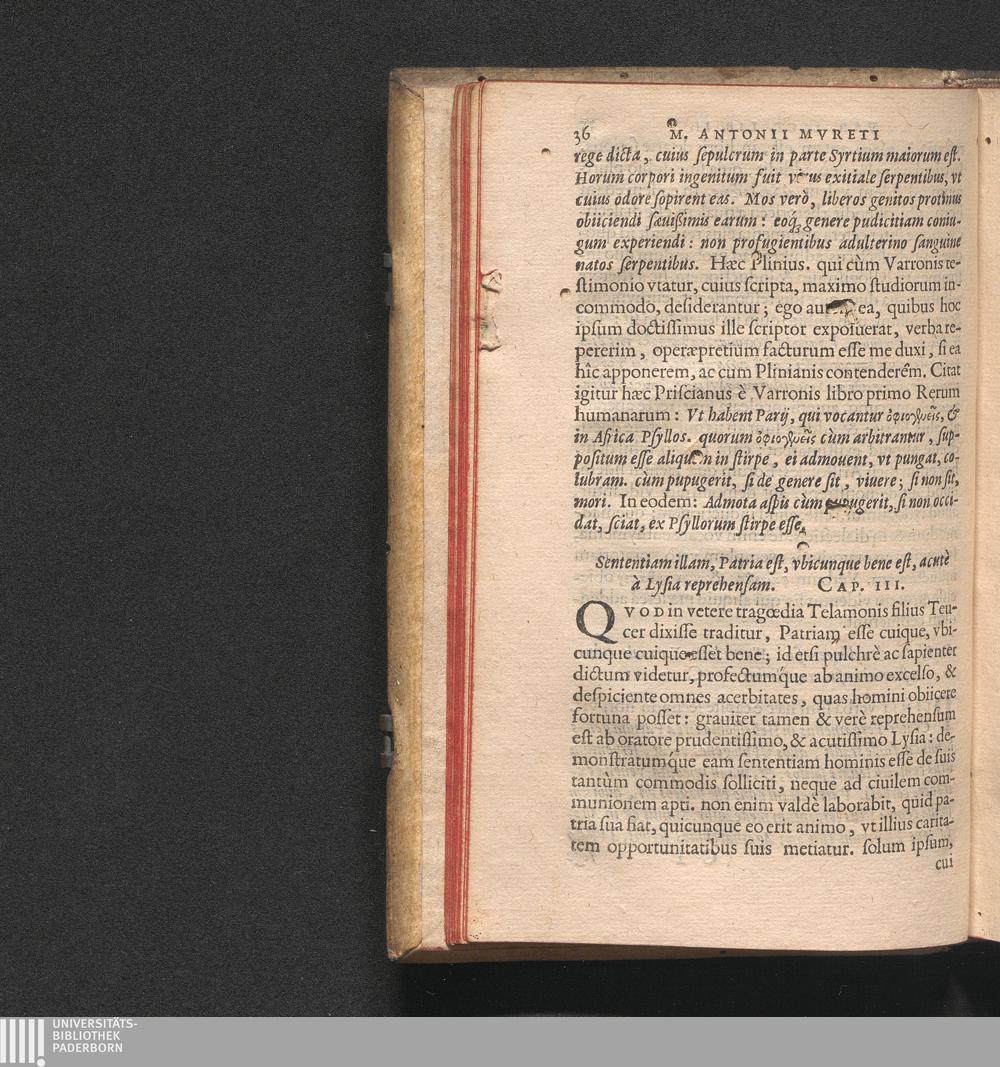 36 M. ANTONII MVRETI
rege dicta, cuius sepulcrum in parte Syrtium maiorum est.
Horum corpori ingenitum fuit virus exitiale serpentibus, vt
cuius odore sopirent eas. Mos verò, liberos genitos protinus
obiiciendi sæuißimis earum: eoq́; genere pudicitiam coniu-
gum experiendi: non profugientibus adulterino sanguine
natos serpentibus. Hæc Plinius. qui cùm Varronis te-
stimonio vtatur, cuius scripta, maximo studiorum in-
commodo, desiderantur; ego autem ea, quibus hoc
ipsum doctissimus ille scriptor exposuerat, verba re-
pererim, operæpretium facturum esse me duxi, si ea
hîc apponerem, ac cum Plinianis contenderem. Citat
igitur hæc Priscianus è Varronis libro primo Rerum
humanarum: Vt habent Parij, qui vocantur ὀφιογενεῖς, &
in Africa Psyllos. quorum ὀφιογενεῖς cùm arbitrantur, sup-
positum esse aliquem in stirpe, ei admouent, vt pungat, co-
lubram. cùm pupugerit, si de genere sit, viuere; si non sit,
mori. In eodem: Admota aspis cùm pupugerit, si non occi-
dat, sciat, ex Psyllorum stirpe esse.
Sententiam illam, Patria est, vbicunque bene est, acutè
à Lysia reprehensam. CAP. III.
QVOD in vetere tragœdia Telamonis filius Teu-
cer dixisse traditur, Patriam esse cuique, vbi-
cunque cuique esset bene; id etsi pulchrè ac sapienter
dictum videtur, profectumque ab animo excelso, &
despiciente omnes acerbitates, quas homini obiicere
fortuna posset: grauiter tamen & verè reprehensum
est ab oratore prudentissimo, & acutissimo Lysia: de-
monstratumque eam sententiam hominis esse de suis
tantùm commodis solliciti, neque ad ciuilem com-
munionem apti. non enim valdè laborabit, quid pa-
tria sua fiat, quicunque eo erit animo, vt illius carita-
tem opportunitatibus suis metiatur. solum ipsum,
cui
UNIVERSITÄTS-
BIBLIOTHEK
PADERBORN